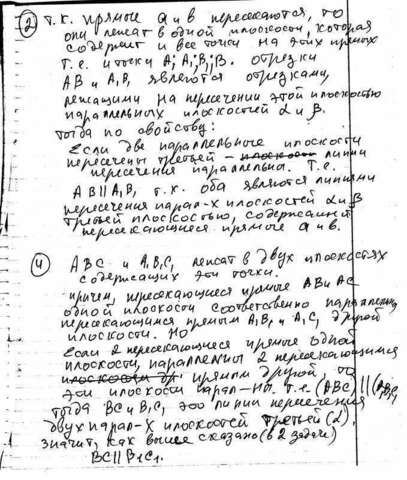 ② Т.к. прямые a и b пересекаются, то
они лежат в одной плоскости, которая
содержит и все точки на этих прямых
т.е. и точки A; A₁; B₁; B. отрезки
AB и A₁B₁ являются отрезками,
лежащими на пересечении этой плоскостью
параллельных плоскостей α и β.
тогда по свойству:
Если две параллельные плоскости
пересечены третьей – плоскост линии
пересечения параллельны. Т.е.
AB || A₁B₁ т.к. оба являются линиями
пересечения парал-х плоскостей α и β
третьей плоскостью, содержащей
пересекающиеся прямые a и b.
④ ABC и A₁B₁C₁ лежат в двух плоскостях
содержащих эти точки.
причем, пересекающиеся прямые AB и AC
одной плоскости соответственно параллельны
пересекающимся прямым A₁B₁ и A₁C₁ другой
плоскости. Но
Если 2 пересекающиеся прямые одной
плоскости, параллельны 2 пересекающимся
плоскости др прямым другой, то
эти плоскости парал-ны. т.е. (ABC) || (A₁B₁C₁)
тогда BC и B₁C₁ это линии пересечения
двух парал-х плоскостей третьей (α).
значит, как выше сказано (в 2 задаче)
BC || B₁C₁.